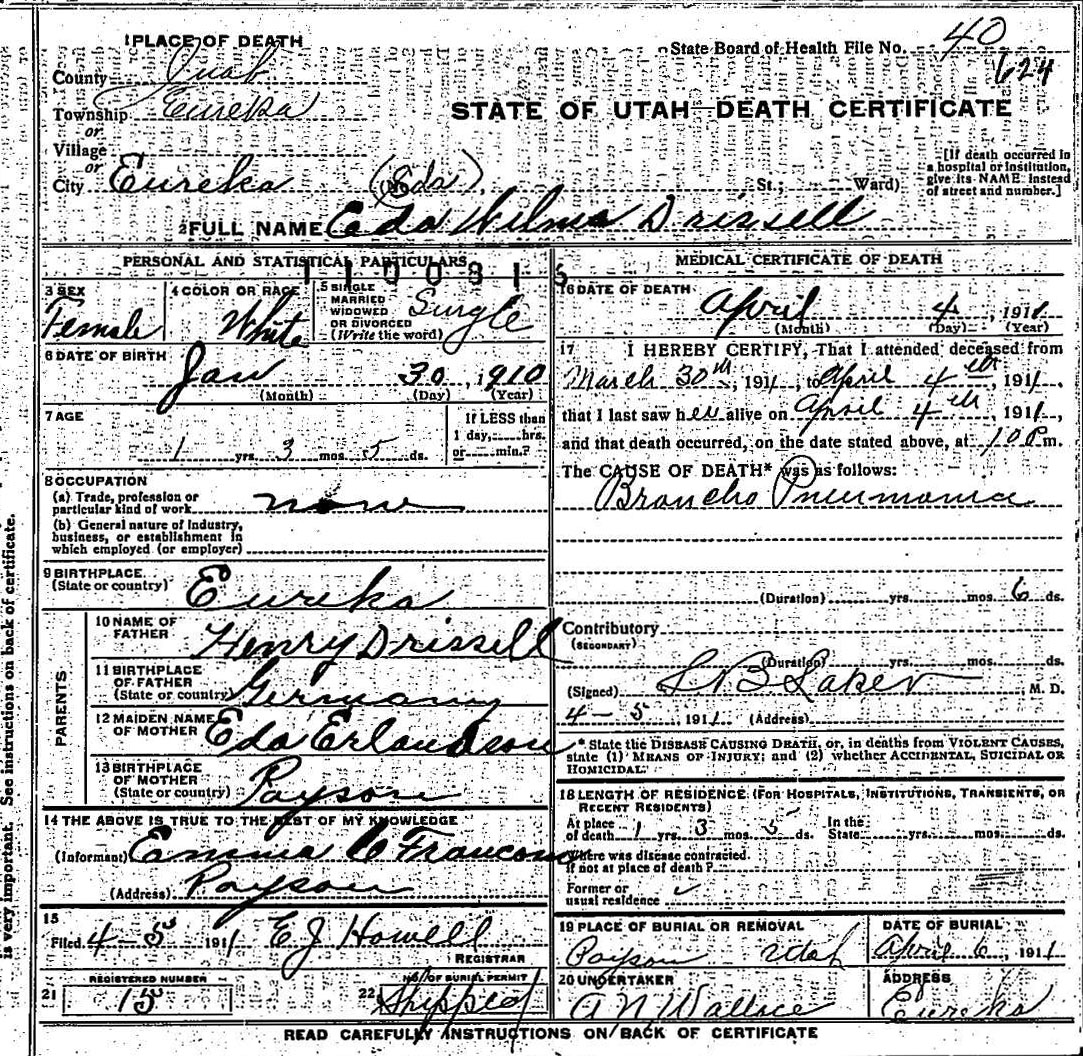 1 PLACE OF DEATH
State Board of Health File No. 40
624
County Juab
Township Eureka
or
Village
or
City Eureka
STATE OF UTAH—DEATH CERTIFICATE
(No. St.; Ward)
(Eda)
[If death occurred in a hospital or institution, give its NAME instead of street and number.]
2 FULL NAME Eda Wilma Drissell
PERSONAL AND STATISTICAL PARTICULARS
3 SEX
Female
4 COLOR OR RACE
White
5 SINGLE MARRIED WIDOWED OR DIVORCED (Write the word)
Single
6 DATE OF BIRTH
Jan 30, 1910
(Month) (Day) (Year)
7 AGE
1 yrs. 3 mos. 5 ds.
If LESS than 1 day, hrs. or min.?
8 OCCUPATION
(a) Trade, profession or particular kind of work none
(b) General nature of industry, business, or establishment in which employed (or employer)
9 BIRTHPLACE
(State or country) Eureka
PARENTS
10 NAME OF FATHER Henry Drissell
11 BIRTHPLACE OF FATHER (State or country) Germany
12 MAIDEN NAME OF MOTHER Eda Erlandson
13 BIRTHPLACE OF MOTHER (State or country) Payson
14 THE ABOVE IS TRUE TO THE BEST OF MY KNOWLEDGE
(Informant) Emma C
(Address) Payson
15
Filed 4-5 1911 E J Howell
REGISTRAR
REGISTERED NUMBER
21 15
NO. OF BURIAL PERMIT
22 Shipped
MEDICAL CERTIFICATE OF DEATH
16 DATE OF DEATH
April 4, 1911
(Month) (Day) (Year)
17 I HEREBY CERTIFY, That I attended deceased from
March 30th, 1911, to April 4th, 1911,
that I last saw her alive on April 4th, 1911,
and that death occurred, on the date stated above, at 10 P.m.
The CAUSE OF DEATH* was as follows:
Broncho Pneumonia
(Duration) yrs. mos. 6 ds.
Contributory
(SECONDARY)
(Duration) yrs. mos. ds.
(Signed) M. D.
4-5, 1911 (Address)
* State the DISEASE CAUSING DEATH, or, in deaths from VIOLENT CAUSES, state (1) MEANS OF INJURY; and (2) whether ACCIDENTAL, SUICIDAL OR HOMICIDAL.
18 LENGTH OF RESIDENCE (FOR HOSPITALS, INSTITUTIONS, TRANSIENTS, OR RECENT RESIDENTS)
At place of death 1 yrs. 3 mos. 5 ds. In the State yrs. mos. ds.
Where was disease contracted if not at place of death?
Former or usual residence
19 PLACE OF BURIAL OR REMOVAL
Payson Utah
DATE OF BURIAL
April 6, 1911
20 UNDERTAKER
A N Wallace
ADDRESS
Eureka
READ CAREFULLY INSTRUCTIONS ON BACK OF CERTIFICATE
is very important. See instructions on back of certificate.